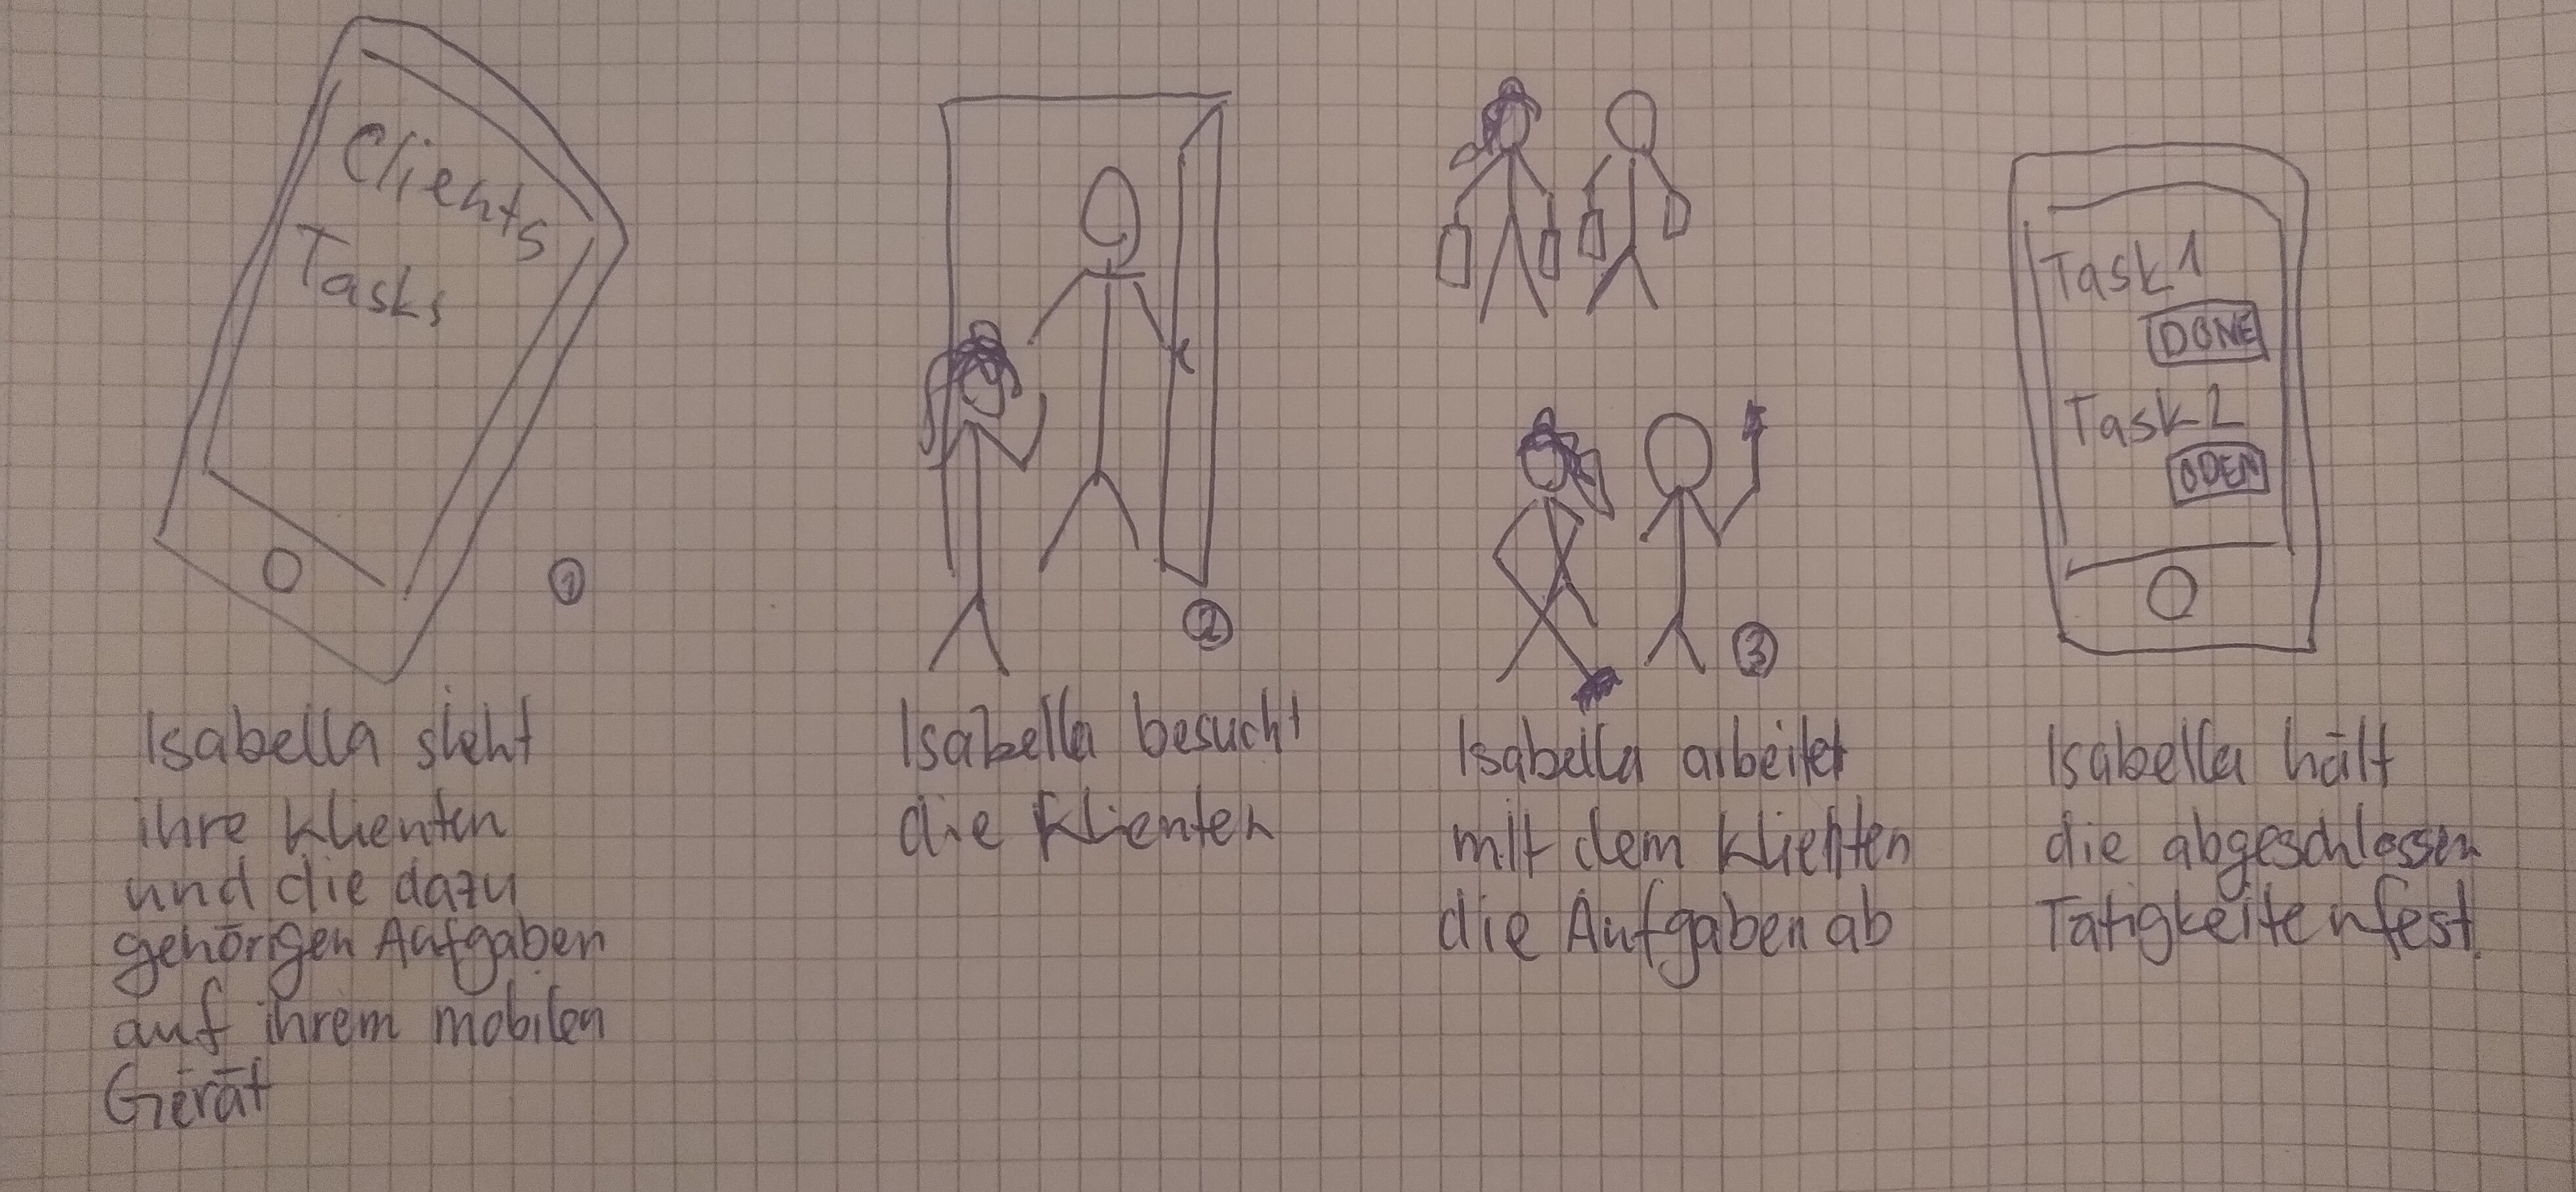 Clients
Tasks
1
Isabella sieht
ihre Klienten
und die dazu
gehörigen Aufgaben
auf ihrem mobilen
Gerät
2
Isabella besucht
die Klienten
3
Isabella arbeitet
mit dem Klienten
die Aufgaben ab
Task 1
DONE
Task 2
OPEN
Isabella hält
die abgeschlossen
Tätigkeiten fest.